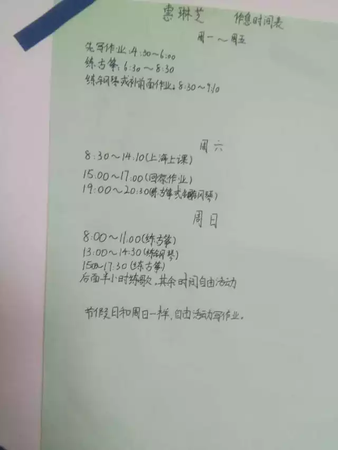 雷琳芝 作息时间表
周一～周五
先写作业:4:50～6:00
练古筝:6:30～8:30
练钢琴或补前面作业:8:30～9:10
周六
8:30～14:10(上海上课)
15:00～17:00(回家作业)
19:00～20:30(练古筝或钢琴)
周日
8:00～11:00(练古筝)
13:00～14:30(练钢琴)
15:00～17:30(练古筝)
后面半小时练歌,其余时间自由活动
节假日和周日一样,自由活动写作业。